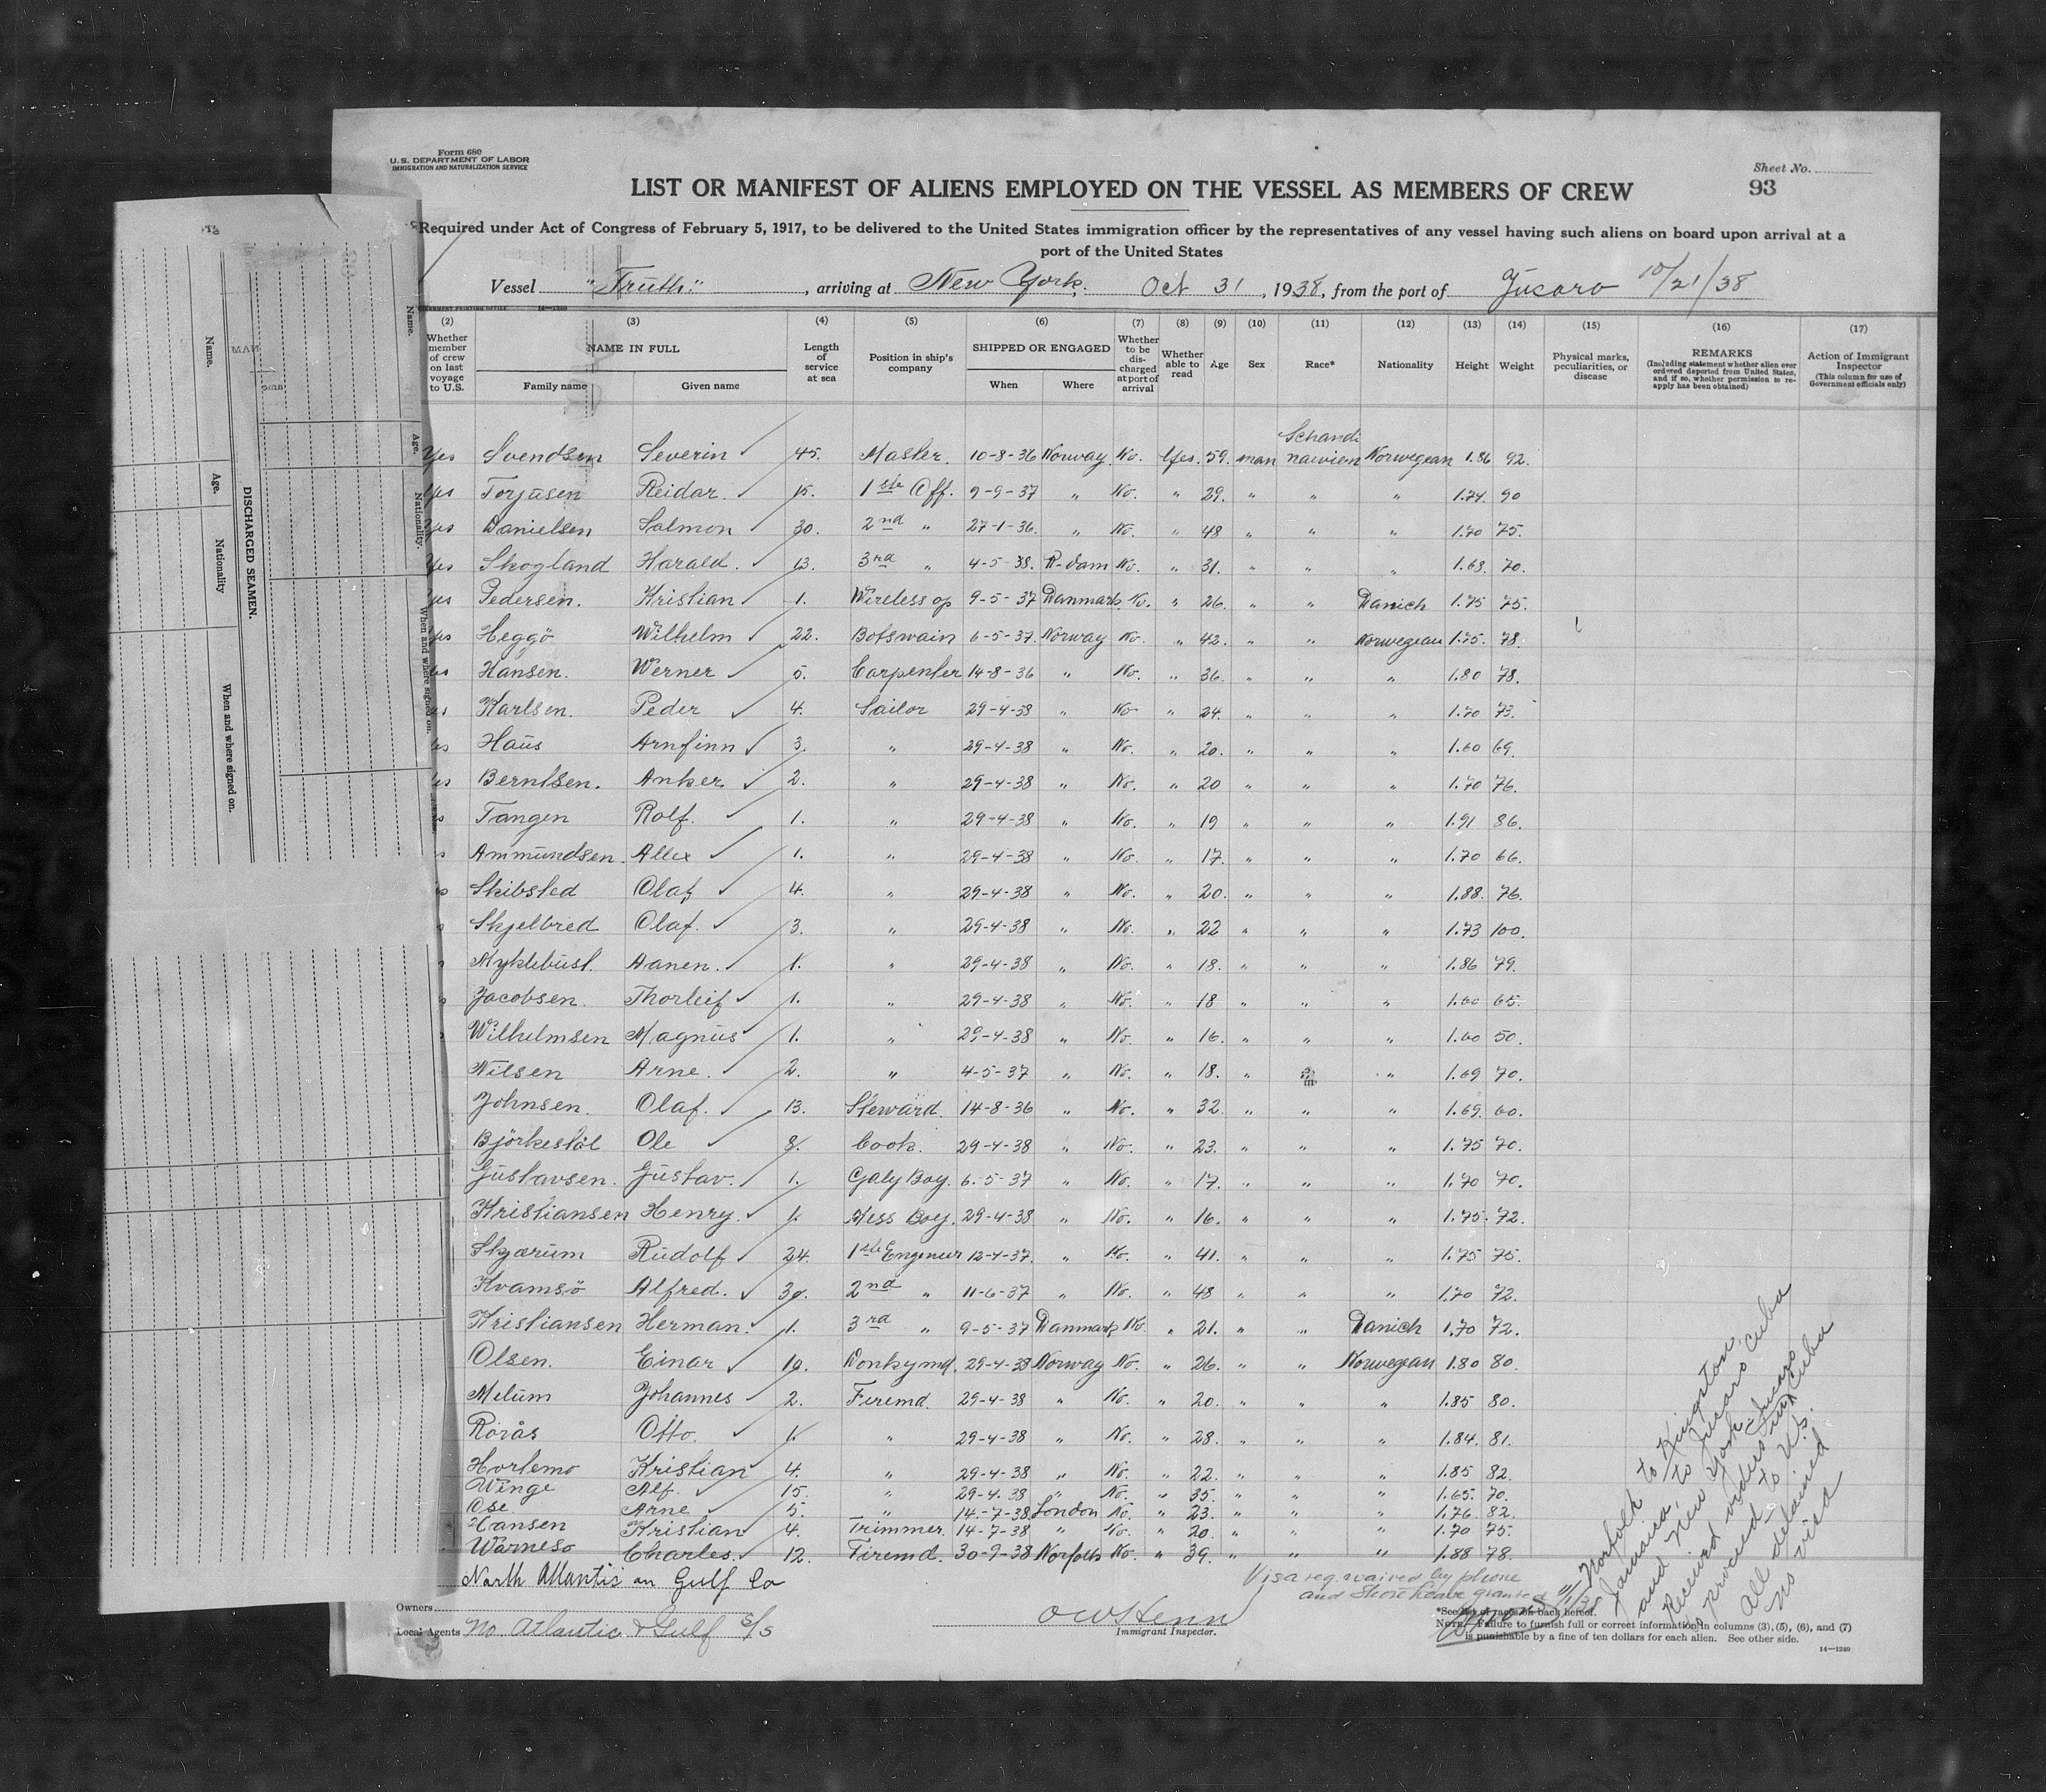 Form 680
U.S. DEPARTMENT OF LABOR
IMMIGRATION AND NATURALIZATION SERVICE
Sheet No.
93
LIST OR MANIFEST OF ALIENS EMPLOYED ON THE VESSEL AS MEMBERS OF CREW
Required under Act of Congress of February 5, 1917, to be delivered to the United States immigration officer by the representatives of any vessel having such aliens on board upon arrival at a
port of the United States
Vessel "Truth" , arriving at New York, Oct 31 , 1938, from the port of Jucaro 10/21/38
14—1240
(2) (3) (4) (5) (6) (7) (8) (9) (10) (11) (12) (13) (14) (15) (16) (17)
Whether member of crew on last voyage to U.S.
NAME IN FULL
Family name Given name
Length of service at sea
Position in ship's company
SHIPPED OR ENGAGED
When Where
Whether to be discharged at port of arrival
Whether able to read
Age Sex Race* Nationality Height Weight
Physical marks, peculiarities, or disease
REMARKS
(Including statement whether alien ever ordered deported from United States, and if so, whether permission to reapply has been obtained)
Action of Immigrant Inspector
(This column for use of Government officials only)
Yes Svendsen Severin 45. Master. 10-8-36 Norway. No. Yes. 59. man Schandinavien Norwegean 1.86 92.
Yes Torjusen Reidar. 15. 1ste Off. 9-9-37 " No. " 29. " " " 1.74. 90
Yes Danielsen Salmon 30. 2nd " 27-1-36. " No. " 48 " " " 1.70 75.
Yes Skogland Harald. 13. 3rd " 4-5-38. R-dam No. " 31. " " " 1.68. 70.
Yes Pedersen. Kristian 1. Wireless op 9-5-37 Danmark No. " 26. " " Danich 1.75 75.
Yes Heggö Wilhelm 22. Botswain 6-5-37. Norway No. " 42. " " Norwegean 1.75. 78.
Yes Hansen. Werner 5. Carpenter 14-8-36 " No. " 36. " " " 1.80 78.
Karlsen. Peder 4. Sailor 29-4-38 " No " 24. " " " 1.70 73.
Haus Arnfinn 3. " 29-4-38 " No. " 20. " " " 1.60 69.
Berntsen. Anker 2. " 29-4-38 " No. " 20 " " " 1.70 76.
Tangen Rolf. 1. " 29-4-38 " No. " 19 " " " 1.91 86.
Ammundsen. Allex 1. " 29-4-38 " No. " 17. " " " 1.70 66.
Skibsted Olaf 4. " 29-4-38 " No. " 20. " " " 1.88. 76.
Skjelbred Olaf. 3. " 29-4-38 " No. " 22 " " " 1.73 100.
Myklebust. Aanen. 1. " 29-4-38 " No. " 18. " " " 1.86 79.
Jacobsen. Thorleif 1. " 29-4-38 " No. " 18 " " " 1.60 65.
Wilhelmsen Magnus 1. " 29-4-38 " No. " 16. " " " 1.60 50.
Nilsen Arne. 2. " 4-5-37 " No. " 18. " " 1.69 70.
Johnsen. Olaf. 13. Steward. 14-8-36 " No. " 32. " " " 1.69. 60.
Björkestöl Ole 8. Cook. 29-4-38 " No. " 23. " " " 1.75 70.
Gustavsen. Gustav. 1. Galy Boy. 6-5-37 " No. " 17. " " " 1.70 70.
Kristiansen Henry. 1. Mess Boy. 29-4-38 " No. " 16. " " " 1.75. 72.
Skjærum Rudolf 24. 1ste Engeneer 12-4-37. " No. " 41. " " " 1.75 75.
Kvamsö Alfred. 30. 2nd " 11-6-37 " No. " 48 " " " 1.70 72.
Kristiansen Herman. 1. 3rd " 9-5-37 Danmark No " 21. " " Danich 1.70 72.
Olsen. Einar 10. Donkymd. 29-4-38 Norway No. " 26. " " Norwegean 1.80 80.
Melum Johannes 2. Firemd. 29-4-38 " No. " 20. " " " 1.85 80.
Rorås Otto. 1. " 29-4-38 " No. " 28. " " " 1.84. 81.
Hortemo Kristian 4. " 29-4-38 " No. " 22. " " " 1.85 82.
Winge Alf. 15. " 29-4-38 " No. " 35. " " " 1.65. 70.
Ose Arne 5. " 14-7-38. London No. " 23. " " " 1.76. 82.
Hansen Kristian 4. Trimmer. 14-7-38 " No. " 20. " " " 1.70 75.
Warneso Charles. 12. Firemd. 30-9-38 Norfolk No. " 39. " " " 1.88 78.
North Atlantic an Gulf Co
Owners
Local Agents No. Atlantic & Gulf S/S
Immigrant Inspector.
Visa req. waived by phone
and shore leave granted
11/1/38
Norfolk to Kingston,
Jamaica, to Jucaro Cuba
and New York. Jucaro
Received orders in Cuba
to proceed to U.S.
All detained
No visa
*See list of races on back hereof.
NOTE.—Failure to furnish full or correct information in columns (3), (5), (6), and (7)
is punishable by a fine of ten dollars for each alien. See other side.
14—1240
DISCHARGED SEAMEN.
Name. Age. Nationality When and where signed on.
Name. Age. Nationality. When and where signed on.